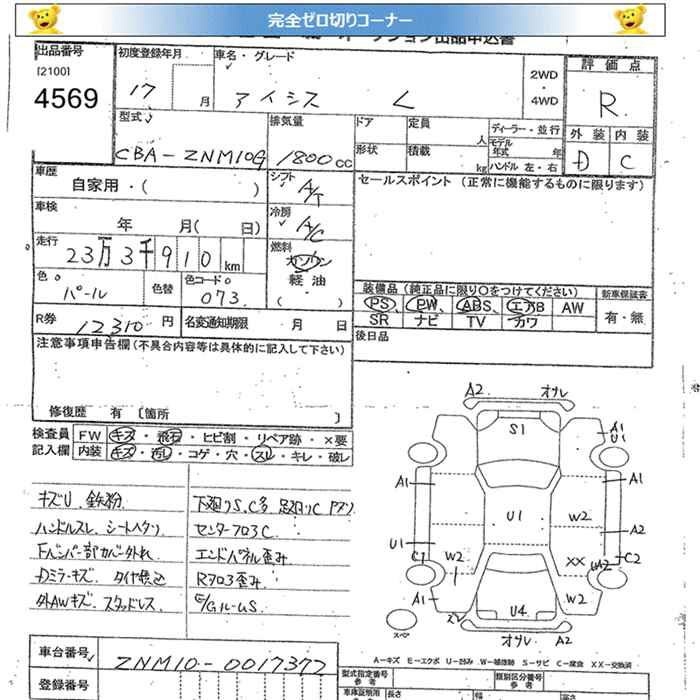 完全ゼロ切りコーナー
出品番号
[2100]
4569
初度登録年月
17 月
車名・グレード
アイシス L
2WD
・
4WD
評価点
R
外装 内装
D C
型式
CBA-ZNM10G
排気量
1800cc
ドア
形状
定員
人
積載
kg
ディーラー・並行
モデル
年式 年
ハンドル 左・右
車歴
自家用・( )
シフト
A/T
セールスポイント (正常に機能するものに限ります)
車検
年 月( 日)
冷房
A/C
走行
23万3千910km
燃料
ガソリン
軽油
( )
色
パール
色替
色コード
073
装備品 (純正品に限り○をつけてください)
PS PW ABS エアB AW
SR ナビ TV カワ
新車保証書
有・無
R券
12310円
名変通知期限 月 日
後日品
注意事項申告欄 (不具合内容等は具体的に記入して下さい)
修復歴 有 [箇所 ]
検査員
記入欄
FW キズ・飛石・ヒビ割・リペア跡・×要
内装 キズ・汚レ・コゲ・穴・スレ・キレ・破レ
キズU 鉄粉
ハンドルスレ シートヘタリ
Fバンパー部カバー外れ
Dミラーキズ タイヤ積込
外AWキズ スタッドレス
下廻りS、C多 足廻りC
センターフロアC
エンドパネル歪み
Rフロア歪み
A2
S1
A1
U1
A1
U1
C1
W2
A1
U1
W2
A1
A2
C2
XX
W2
U4
A2
スペア
A-キズ E-エクボ U-凹み W-補修跡 S-サビ C-腐食 XX-交換済
車台番号
ZNM10-0017372
登録番号
型式指定番号
参考
類別区分番号
参考
長さ
幅
高さ